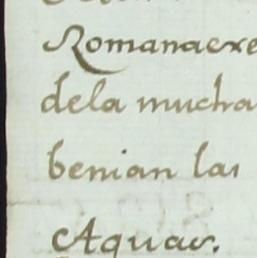 Romana exe
dela mucha
benian las
Aguas.